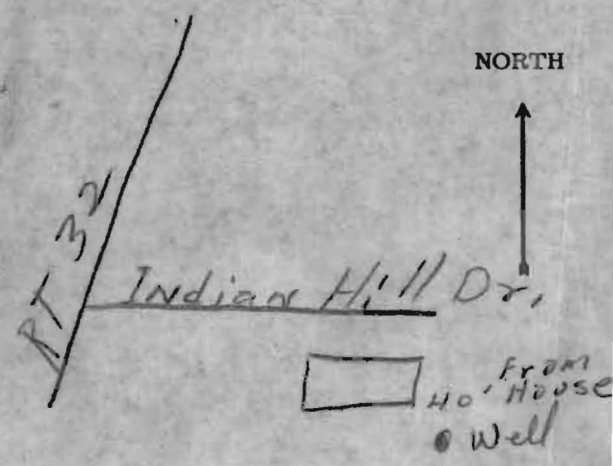 NORTH
RT 32
Indian Hill Dr.
From
40' House
Well